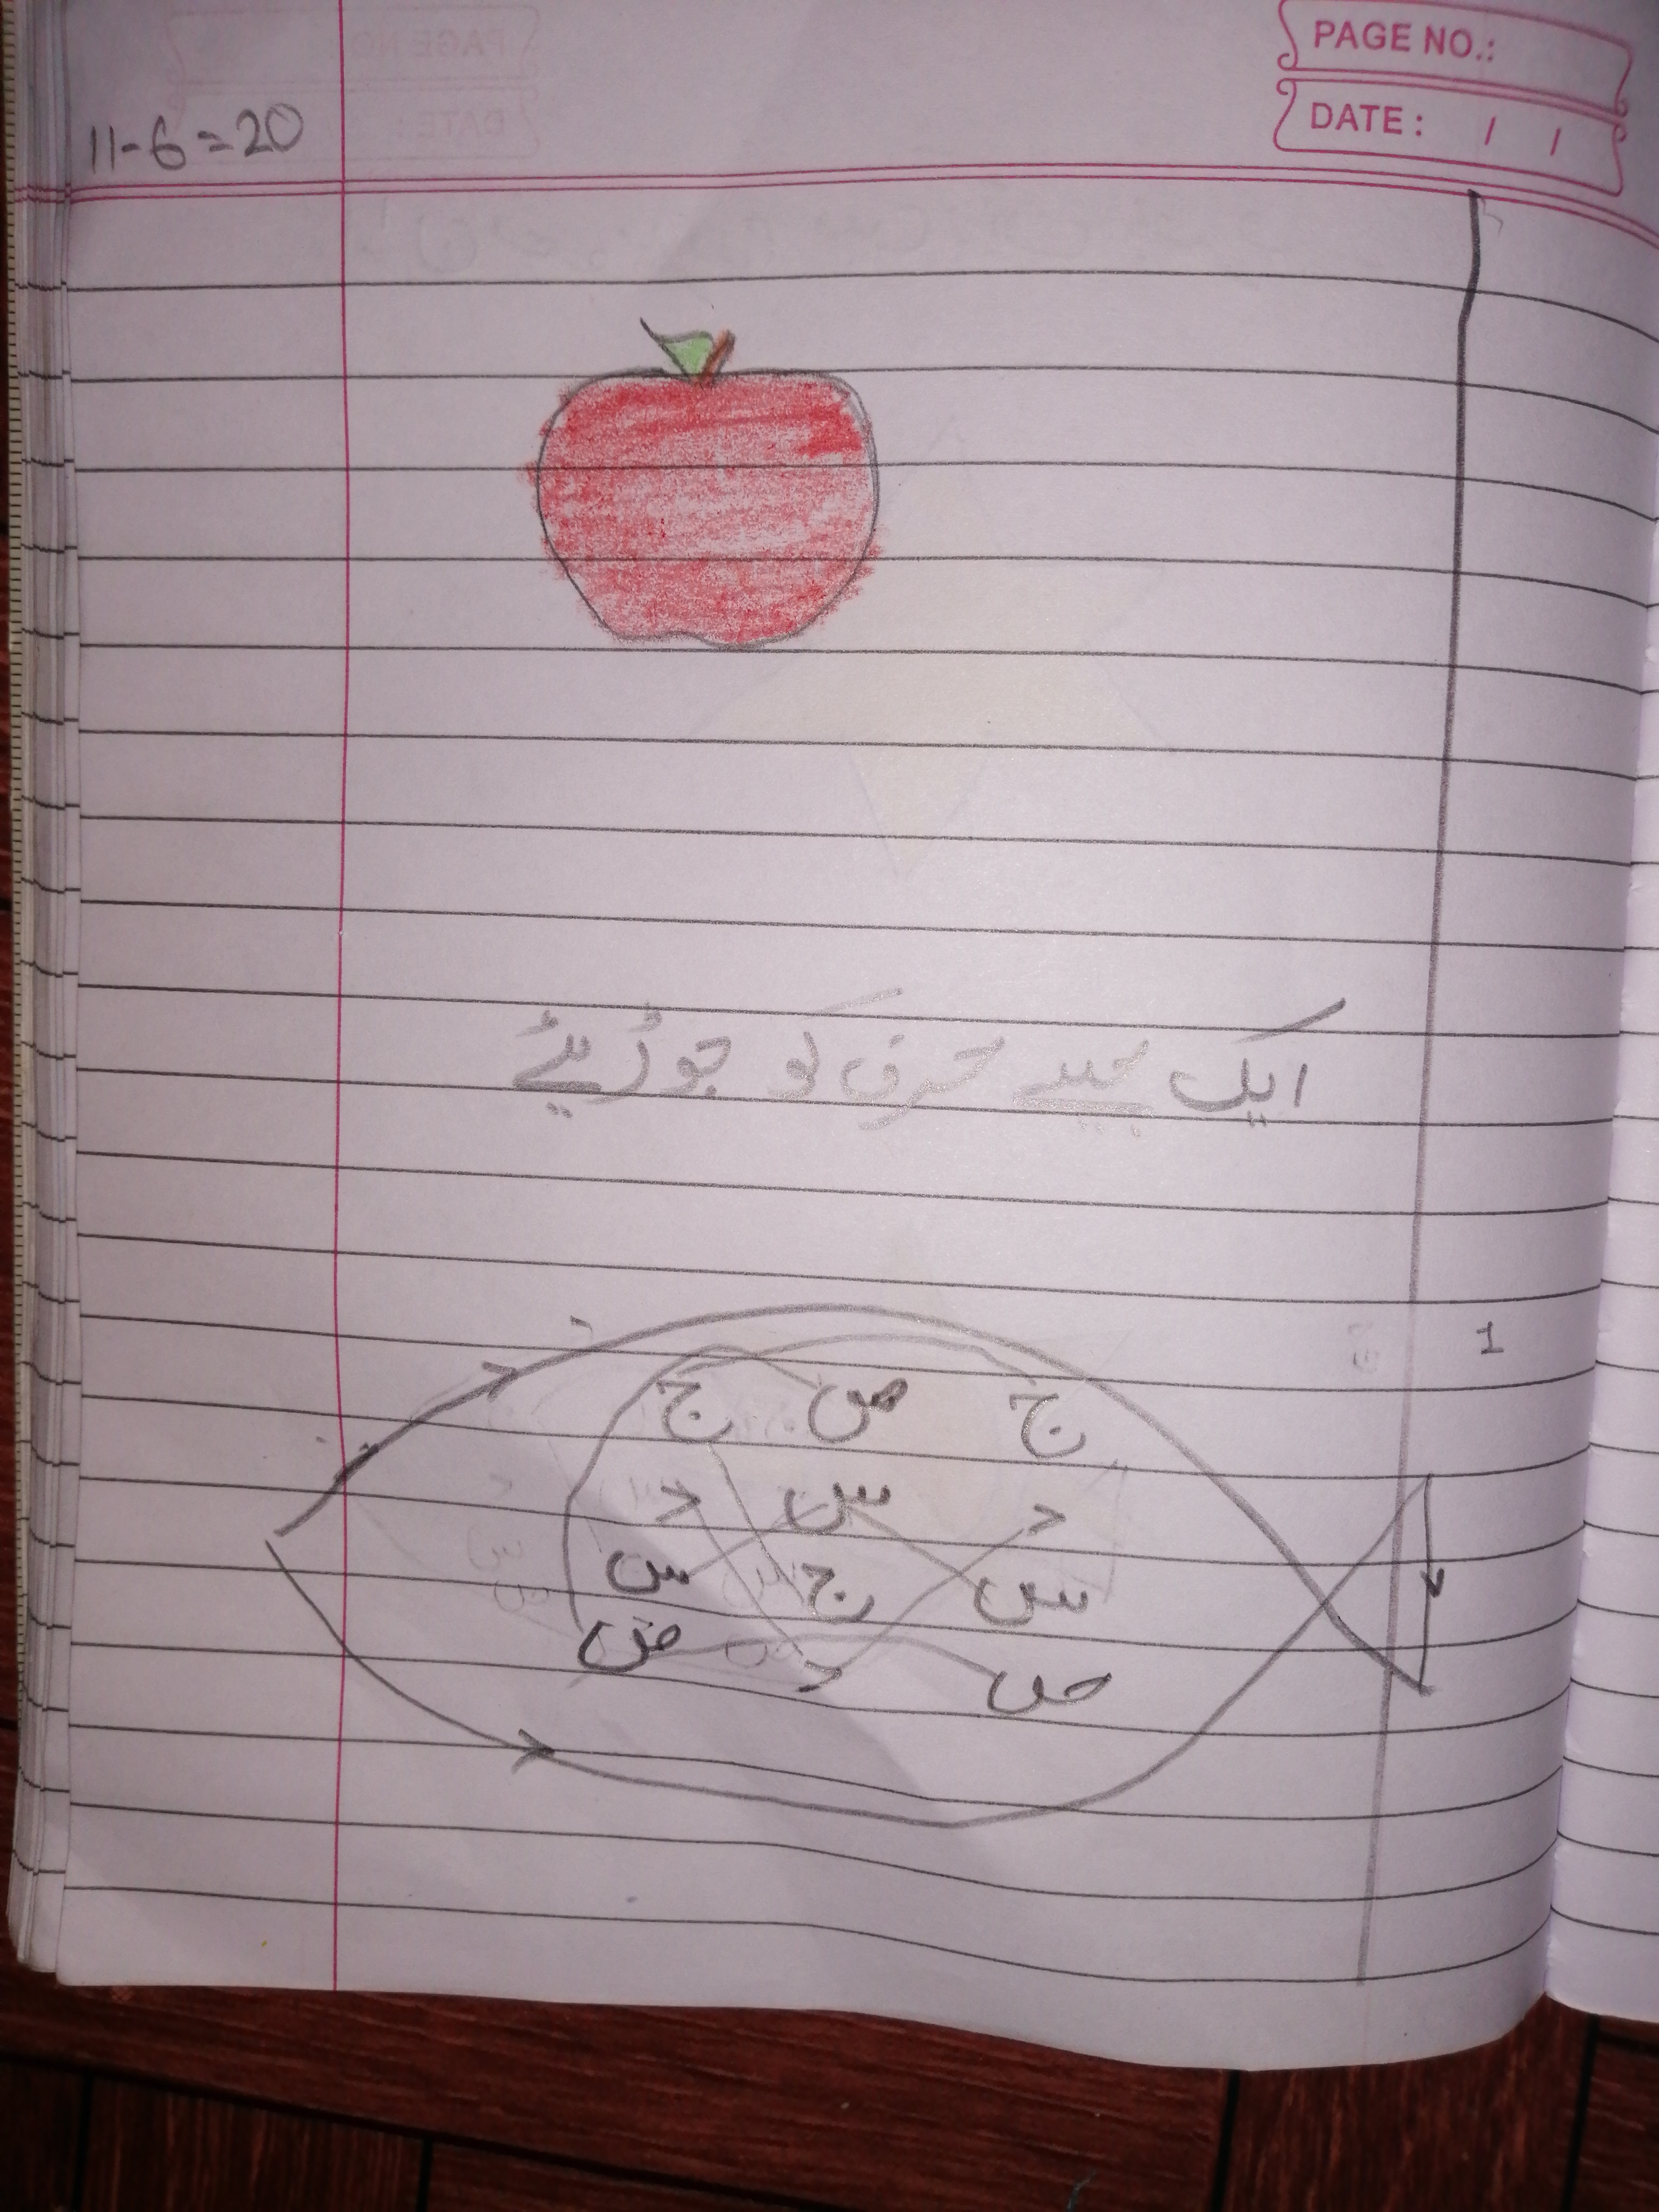 PAGE NO.:
DATE: / /
11-6=20
ایک جیسے حرف کو جوڑیئے
1
ج ص ج
د س د
س ج س
ص د ص